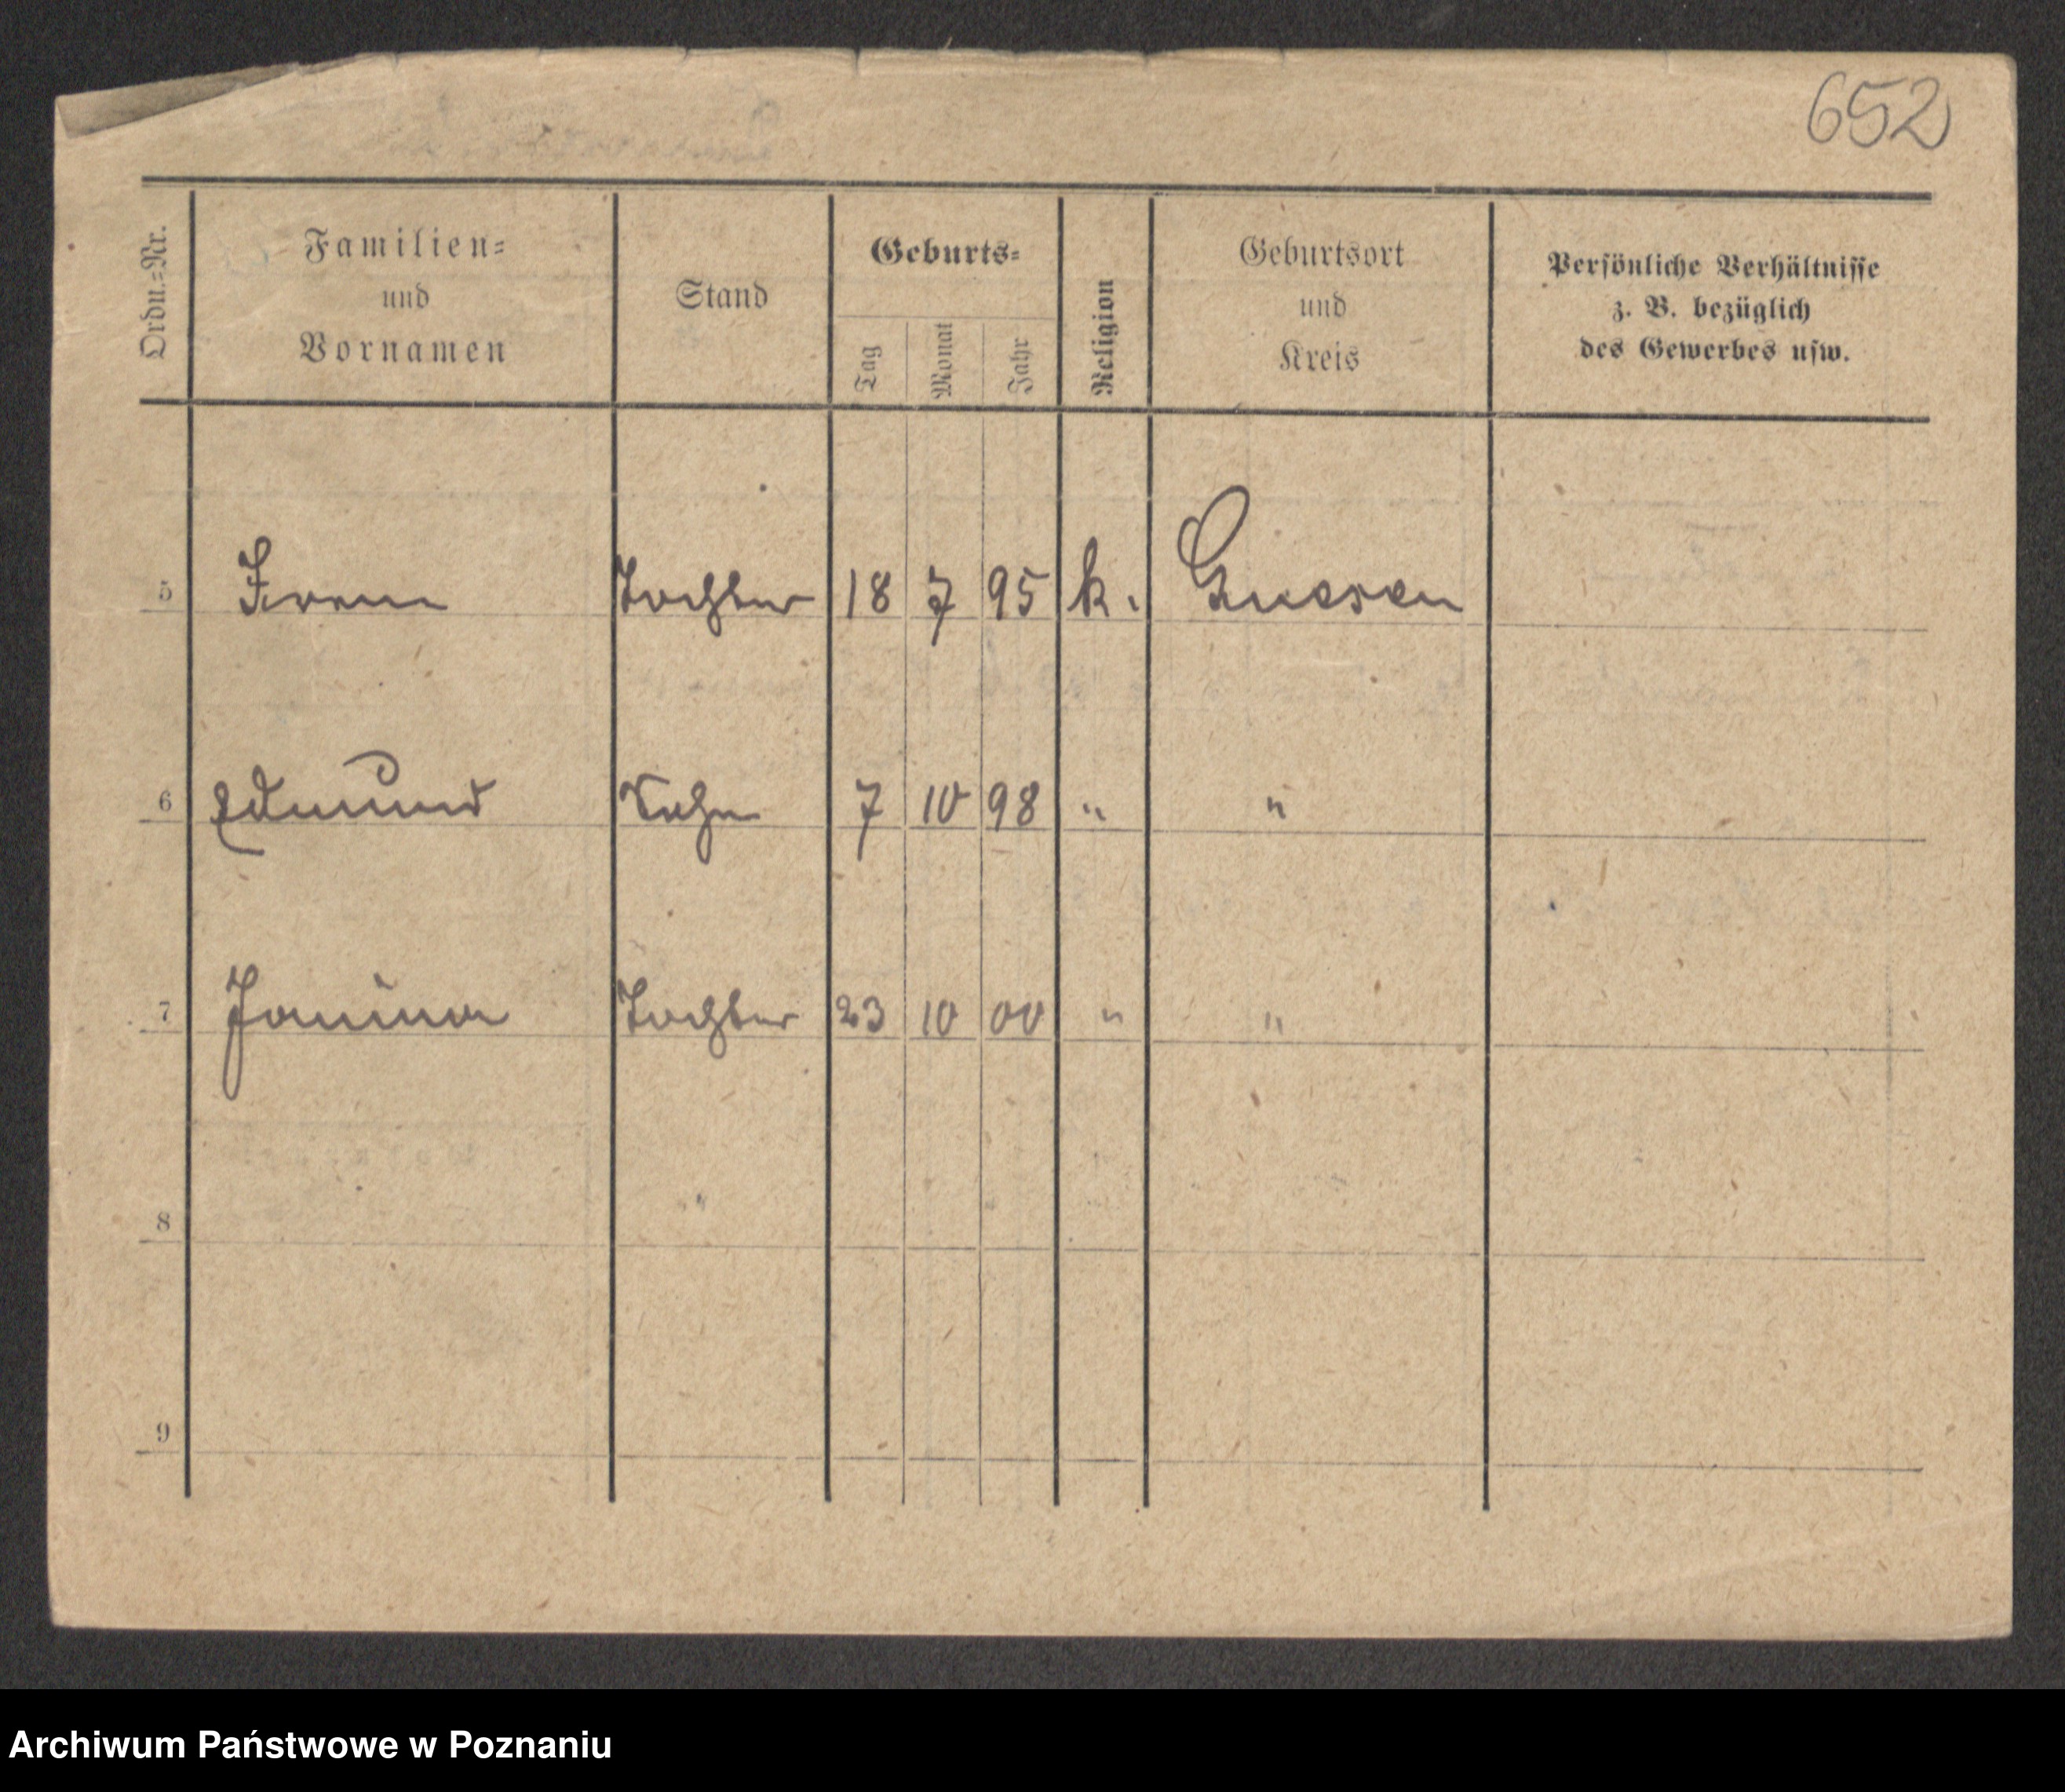 652
Ordn.=Nr.
Familien=
und
Vornamen
Stand
Geburts=
Tag
Monat
Jahr
Religion
Geburtsort
und
Kreis
Persönliche Verhältnisse
z. B. bezüglich
des Gewerbes usw.
5 Tochter 18 7 95 k. Gnesen
6 Edmund Sohn 7 10 98 " "
7 Janina Tochter 23 10 00 " "
8
9
Archiwum Państwowe w Poznaniu